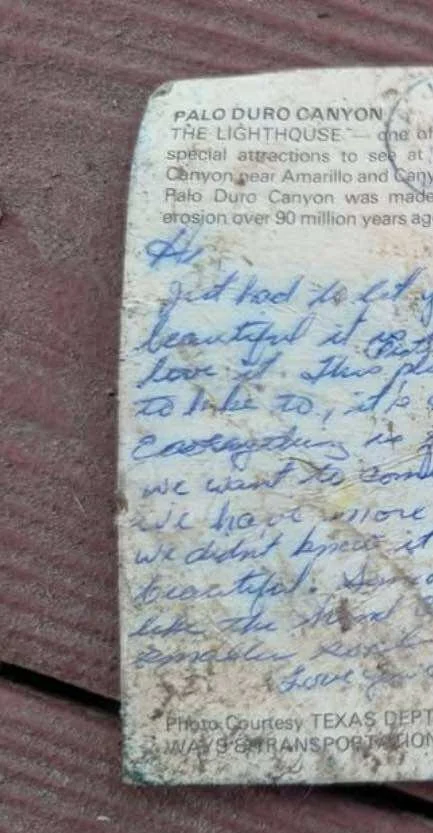 PALO DURO CANYON
THE LIGHTHOUSE — one of
special attractions to see at
Canyon near Amarillo and Cany
Palo Duro Canyon was made
erosion over 90 million years ag
Hi
Just had to let y
beautiful it is
love it. This pl
to hike to, it's
Everything is
we want to come
we have more
we didn't know it
beautiful.
like the
smaller
Love you
Photo Courtesy TEXAS DEPT
WAYS & TRANSPORTATION